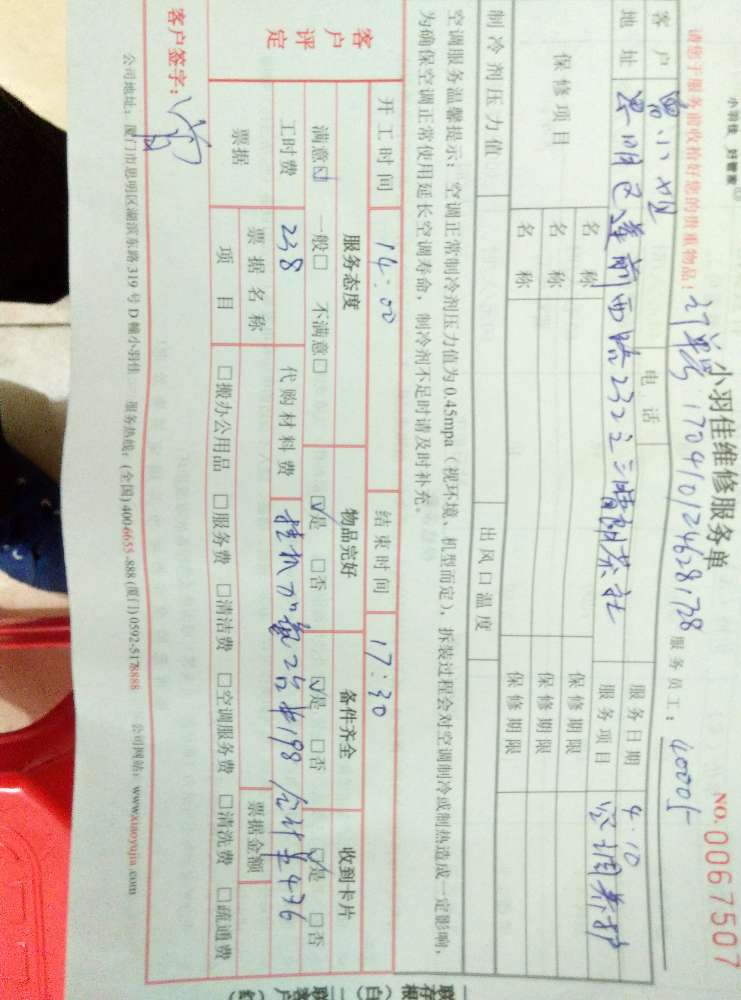 小羽佳 好管家
小羽佳维修服务单
NO. 0067507
请您于服务前收拾好您的贵重物品!
订单号 1704101246281728
服务员工: 40005
客户 曾小姐 电话 服务日期 4.10
地址 思明区莲前西路232之 茶社 服务项目 空调养护
保修项目 名称 保修期限
名称 保修期限
名称 保修期限
制冷剂压力值 出风口温度
空调服务温馨提示: 空调正常制冷剂压力值为 0.45mpa (视环境、机型而定), 拆装过程会对空调制冷或制热造成一定影响,
为确保空调正常使用延长空调寿命, 制冷剂不足时请及时补充。
开工时间 14:00 结束时间 17:30
客户评定 服务态度 物品完好 备件齐全 收到卡片
满意☑ 一般□ 不满意□ ☑是 □否 ☑是 □否 ☑是 □否
工时费 238 代购材料费 挂机加氟2台 198 合计 436
票据 票据名称 票据金额
项目 □搬办公用品 □服务费 □清洁费 □空调服务费 □清洗费 □疏通费
客户签字:
公司地址: 厦门市思明区湖滨东路 319 号 D 幢小羽佳 服务热线: (全国) 400-6655-888 (厦门) 0592-5178888 公司网站: www.xiaoyujia.com
存根(白) 二联客户(红)